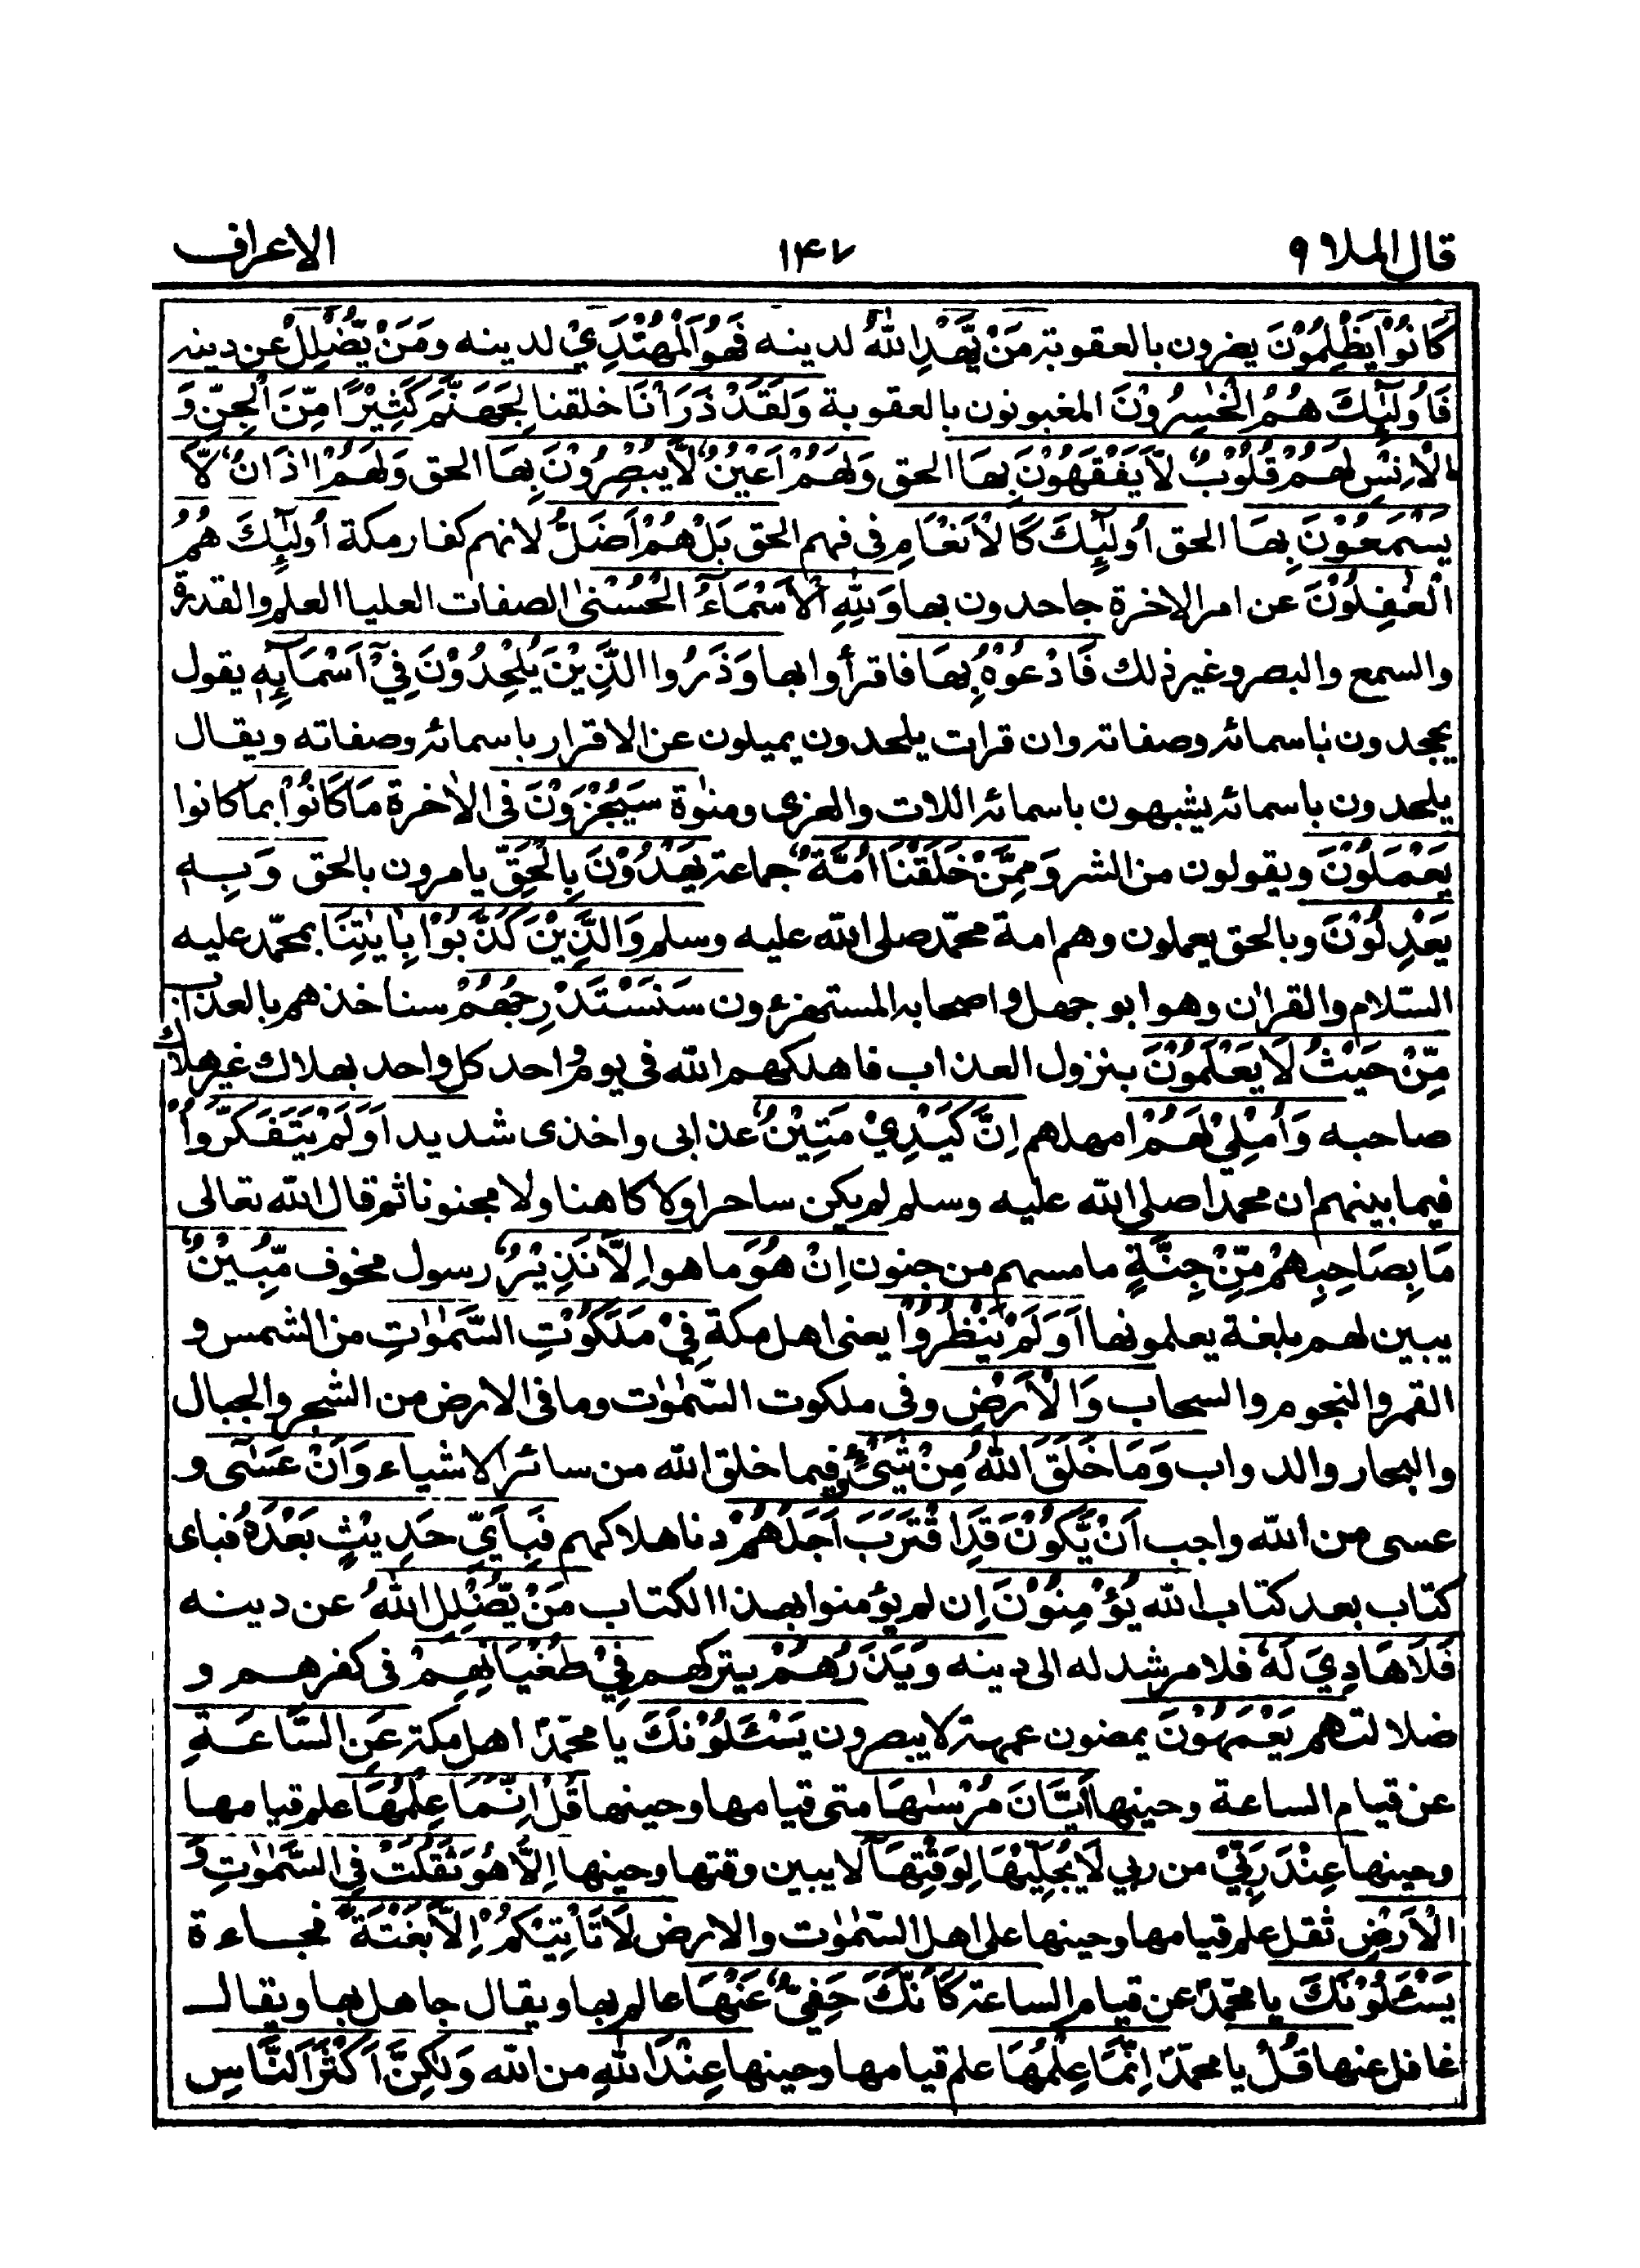 قال الملا ٩
١٤٧
الاعراف
كَانُوْا يَظْلِمُوْنَ يضرون بالعقوبة مَنْ يَّهْدِ اللّٰهُ لدينه فَهُوَ الْمُهْتَدِيْ لدينه وَمَنْ يُّضْلِلْ عن دينه
فَاُولٰٓئِكَ هُمُ الْخٰسِرُوْنَ المغبونون بالعقوبة وَلَقَدْ ذَرَاْنَا خلقنا لِجَهَنَّمَ كَثِيْرًا مِّنَ الْجِنِّ وَ
الْاِنْسِ لَهُمْ قُلُوْبٌ لَّا يَفْقَهُوْنَ بِهَا الحق وَلَهُمْ اَعْيُنٌ لَّا يُبْصِرُوْنَ بِهَا الحق وَلَهُمْ اٰذَانٌ لَّا
يَسْمَعُوْنَ بِهَا الحق اُولٰٓئِكَ كَالْاَنْعَامِ فى فهم الحق بَلْ هُمْ اَضَلُّ لانهم كفار مكة اُولٰٓئِكَ هُمُ
الْغٰفِلُوْنَ عن امر الاخرة جاحدون بها وَلِلّٰهِ الْاَسْمَآءُ الْحُسْنٰى الصفات العليا العلم والقدرة
والسمع والبصر وغير ذلك فَادْعُوْهُ بِهَا فاقرأوا بها وَذَرُوا الَّذِيْنَ يُلْحِدُوْنَ فِيْٓ اَسْمَآئِهٖ يقول
يجحدون باسمائه وصفاته وان قرات يلحدون يميلون عن الاقرار باسمائه وصفاته ويقال
يلحدون باسمائه يشبهون باسمائه اللات والعزى ومنوٰة سَيُجْزَوْنَ فى الاٰخرة مَا كَانُوْا بما كانوا
يَعْمَلُوْنَ ويقولون من الشر وَمِمَّنْ خَلَقْنَا اُمَّةٌ جماعة يَهْدُوْنَ بِالْحَقِّ يامرون بالحق وَبِهٖ
يَعْدِلُوْنَ وبالحق يعملون وهم امة محمّد صلى الله عليه وسلم وَالَّذِيْنَ كَذَّبُوْا بِاٰيٰتِنَا بمحمّد عليه
السّلام والقراٰن وهو ابو جهل واصحابه المستهزءون سَنَسْتَدْرِجُهُمْ سناخذهم بالعذاب
مِّنْ حَيْثُ لَا يَعْلَمُوْنَ بنزول العذاب فاهلكهم الله فى يوم واحد كل واحد بهلاك غير هلاك
صاحبه وَاُمْلِيْ لَهُمْ امهلهم اِنَّ كَيْدِيْ مَتِيْنٌ عذابى واخذى شديد اَوَلَمْ يَتَفَكَّرُوْا
فيما بينهم ان محمدا صلى الله عليه وسلم لم يكن ساحرا ولا كاهنا ولا مجنونا ثم قال الله تعالى
مَا بِصَاحِبِهِمْ مِّنْ جِنَّةٍ ما مسهم من جنون اِنْ هُوَ ما هو اِلَّا نَذِيْرٌ رسول مخوف مُّبِيْنٌ
يبين لهم بلغة يعلمونها اَوَلَمْ يَنْظُرُوْا يعنى اهل مكة فِيْ مَلَكُوْتِ السَّمٰوٰتِ من الشمس و
القمر والنجوم والسحاب وَالْاَرْضِ وفى ملكوت السّمٰوٰت وما فى الارض من الشجر والجبال
والبحار والدواب وَمَا خَلَقَ اللّٰهُ مِنْ شَيْءٍ وفيما خلق الله من سائر الاشياء وَاَنْ عَسٰٓى و
عسى من الله واجب اَنْ يَّكُوْنَ قَدِ اقْتَرَبَ اَجَلُهُمْ دنا هلاكهم فَبِاَيِّ حَدِيْثٍ بَعْدَهٗ فباى
كتاب بعد كتاب الله يُؤْمِنُوْنَ ان لم يؤمنوا بهذا الكتاب مَنْ يُّضْلِلِ اللّٰهُ عن دينه
فَلَا هَادِيَ لَهٗ فلا مرشد له الى دينه وَيَذَرُهُمْ يتركهم فِيْ طُغْيَانِهِمْ فى كفرهم و
ضلالتهم يَعْمَهُوْنَ يمضون عمهة لا يبصرون يَسْئَلُوْنَكَ يا محمّد اهل مكة عَنِ السَّاعَةِ
عن قيام الساعة وحينها اَيَّانَ مُرْسٰىهَا متى قيامها وحينها قُلْ اِنَّمَا عِلْمُهَا علم قيامها
وحينها عِنْدَ رَبِّيْ من ربى لَا يُجَلِّيْهَا لِوَقْتِهَآ لا يبين وقتها وحينها اِلَّا هُوَ ثَقُلَتْ فِى السَّمٰوٰتِ وَ
الْاَرْضِ ثقل علم قيامها وحينها على اهل السّمٰوٰت والارض لَا تَاْتِيْكُمْ اِلَّا بَغْتَةً فجاءة
يَسْئَلُوْنَكَ يا محمّد عن قيام الساعة كَاَنَّكَ حَفِيٌّ عَنْهَا عالم بها ويقال جاهل بها ويقال
غافل عنها قُلْ يا محمّد اِنَّمَا عِلْمُهَا علم قيامها وحينها عِنْدَ اللّٰهِ من الله وَلٰكِنَّ اَكْثَرَ النَّاسِ